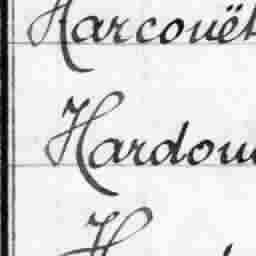 Harcouët
Hardou